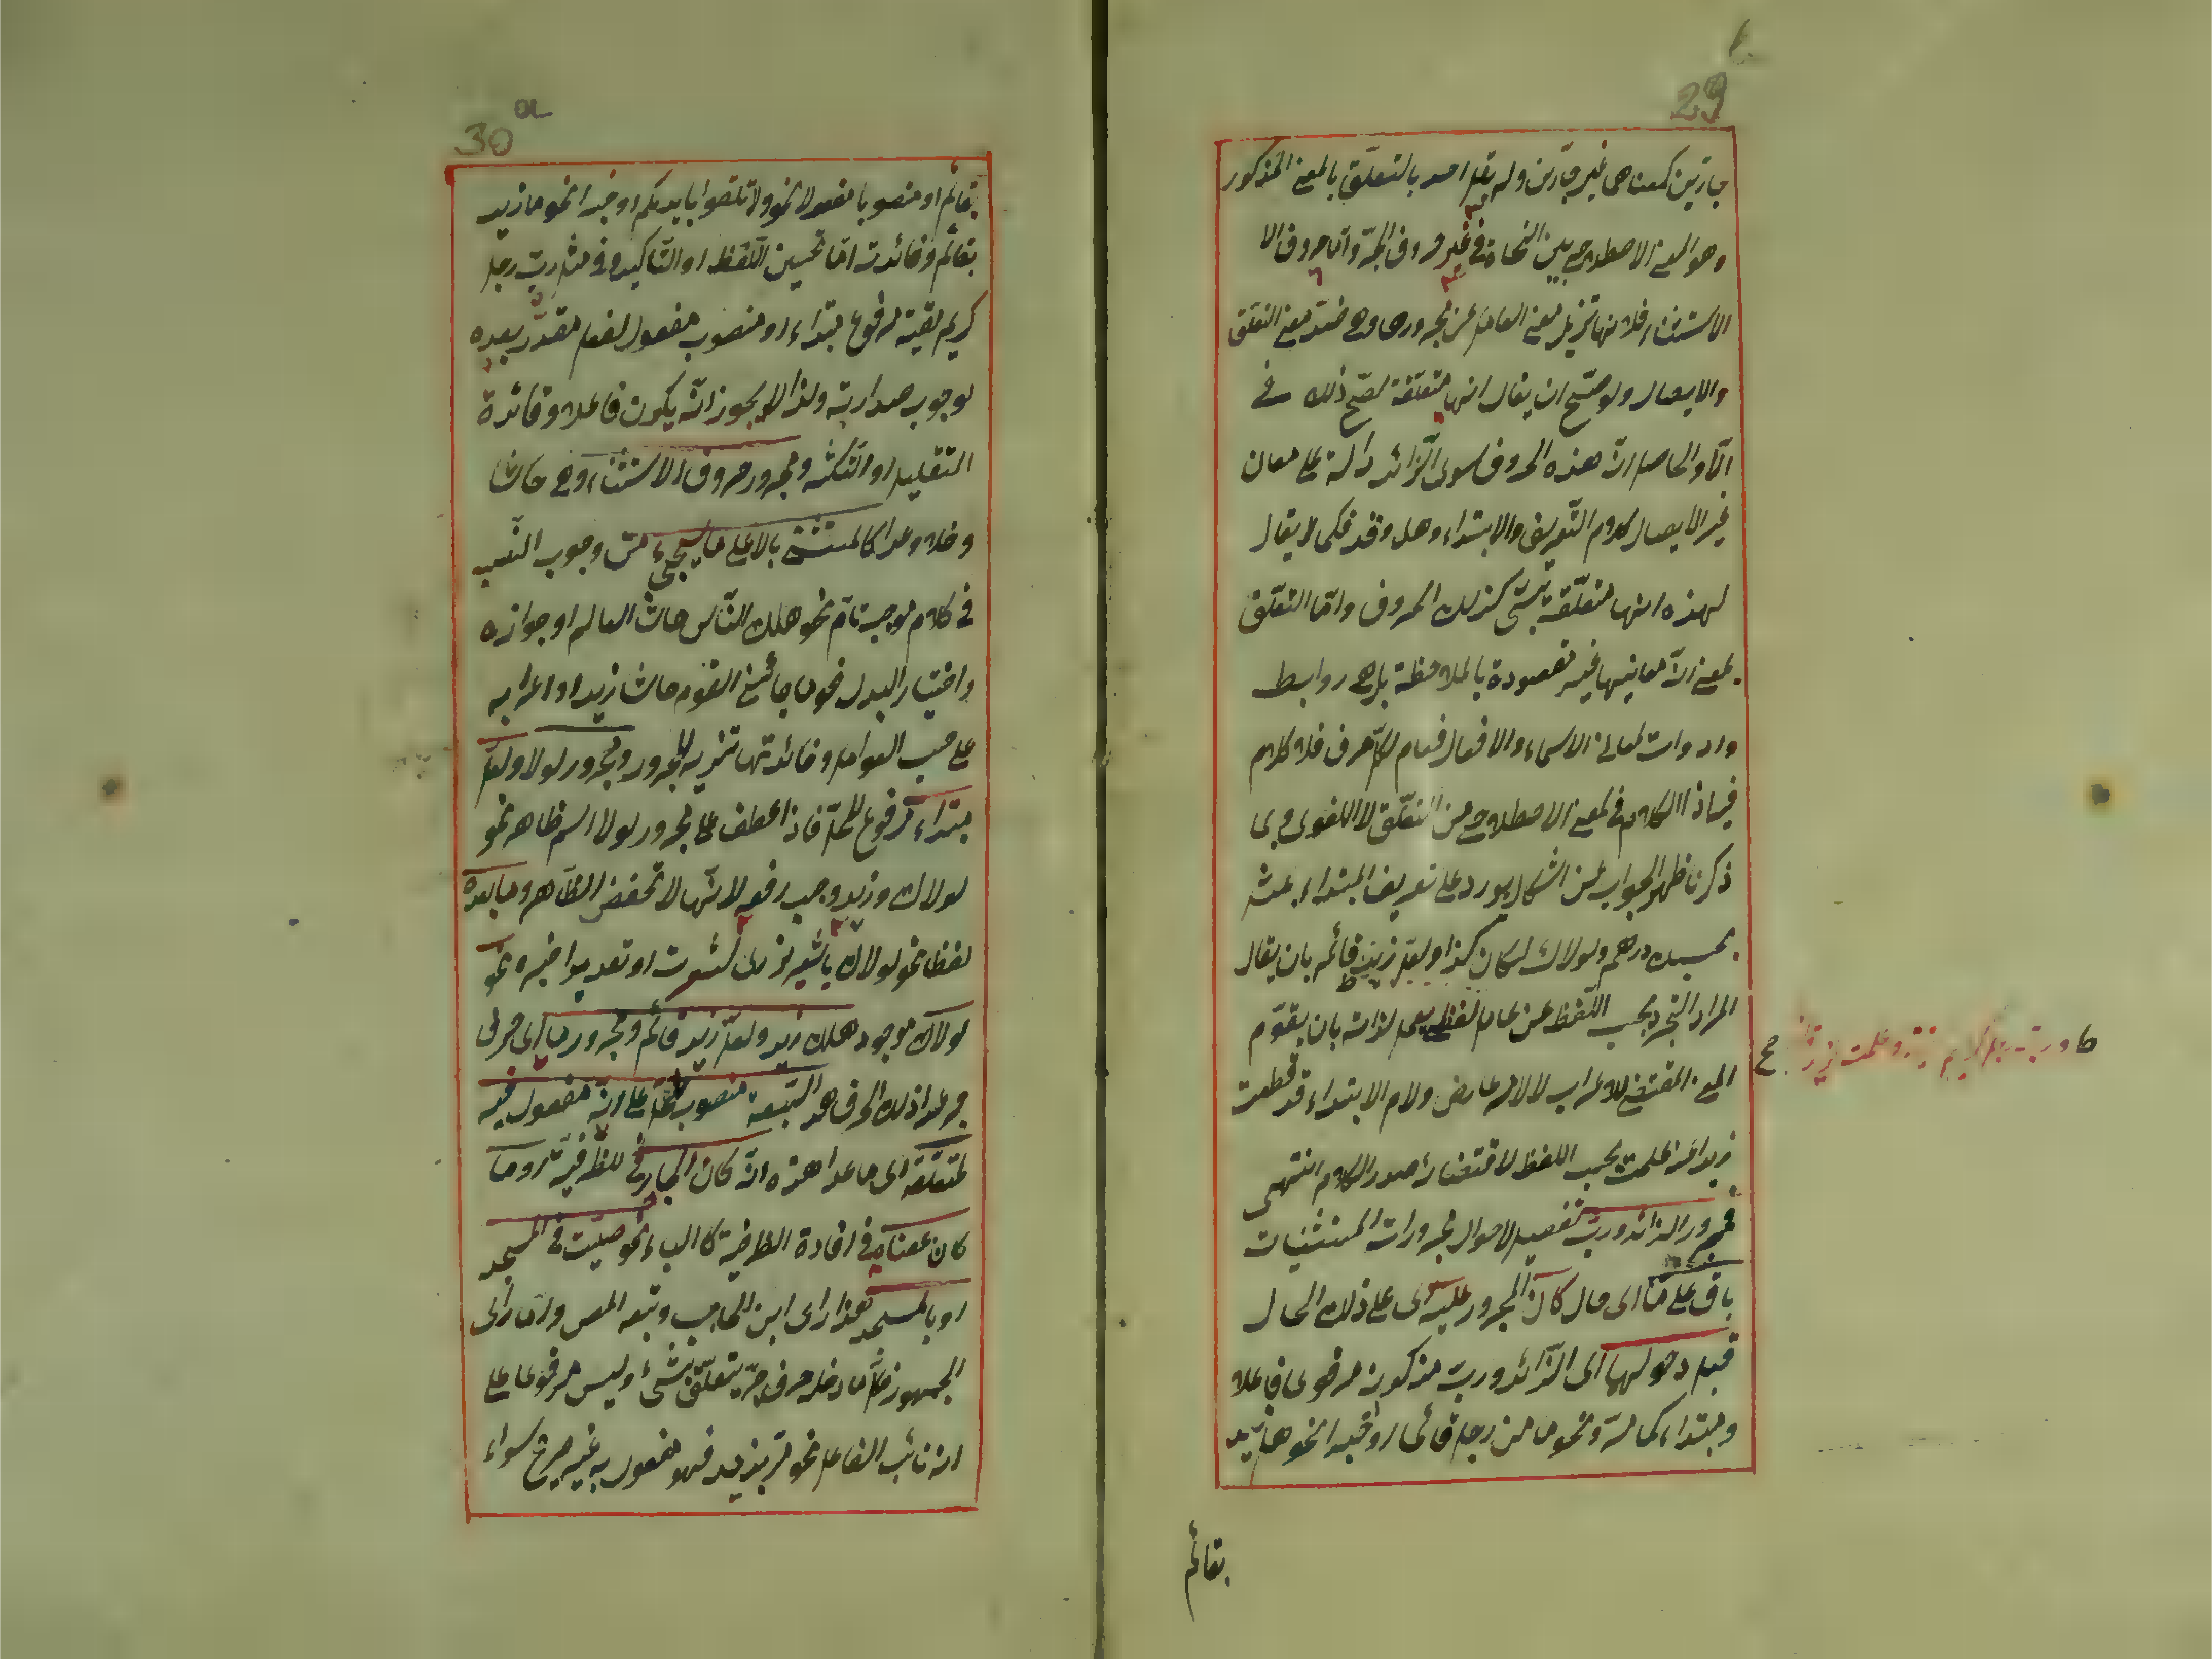 29
جارتين كمعنا هي غير جارتين ولم يقل احد بالتعلّق بالمعنى المذكور
وهو المعنى الاصطلاحي بين النحاة في غير حروف الجرّ وامّا حروف الا
الاستثناء فلانها تزيل معنى العامل عن مجرورها وهي ضدّ معنى التعلق
والايصال ولو صحّ ان يقال انها متعلقة لصحّ ذلك في
الّا والحاصل انّ هذه الحروف سوى الزّائد دالة على معان
غير الايصال كلام التّعريف والابتداء وهل وقد فكما لا يقال
لهذه انها متعلّقة بشئ كذلك الحروف وامّا التعلّق
بمعنى انّ معانيها غير مقصودة بالملاحظة بل هي روابط
وادوات لمعاني الاسماء والافعال فعام لكلّ حرف فلا كلام
فيه اذ الكلام في المعنى الاصطلاحي من التعلّق لا اللغوى وبما
ذكرنا ظهر الجواب عن اشكال يورد على تعريف المبتداء بمثل
بحسبك درهم ولولاك لكان كذا ولعل زيد قائم بان يقال
المراد التجرد بحسب اللّفظ عن عامل لفظي يعمل لذاته بان يقوّم
المعنى المقتضى للاعراب لا لامر عارض ولام الابتداء قد قطعت
زيدا عن علمت بحسب اللفظ لاقتضائه صدر الكلام انتهى
فمجرور الزائد وربّ تفصيل لاحوال مجرورات المستثنيات
باق على ما اى حال كان المجرور عليه اى على ذلك الحال
قبل دخولهما اى الزّائد وربّ من كونه مرفوعا فاعلا
ومبتداء كما مرّ ونحو ما من رجل قائما او خبرا نحو ما زيد
بقائم
30 a
بقائم او منصوبا مفعولا نحو ولا تلقوا بايديكم او خبرا نحو ما زيد
بقائم وفائدته امّا تحسين اللّفظ او التّاكيد وفي مثل ربّ رجل
كريم لقيته مرفوع مبتداء او منصوب مفعول لفعل مقدّر بعده
لوجوب صدارته ولذا لا يجوز انّه يكون فاعلا وفائدة
التقليل او التّكثير ومجرور حروف الاستثناء وهي حاشا
وخلا وعدا كالمستثنى بالا على ما سيجئ من وجوب النّصب
في كلام موجب تامّ نحو هلك النّاس حاشا العالم او جوازه
واختيار البدل نحو ما جائني القوم حاشا زيد او اعرابه
على حسب العوامل وفائدتها تنزيه المجرور ومجرور لولا ولعلّ
مبتداء مرفوع المحلّ فاذا عطف على مجرور لولا اسم ظاهر نحو
لولاك وزيد وجب رفعه لانّها لا تخفض الظّاهر وما بعده
لفظا نحو لولاك او تقديرا خبره نحو
لولاك موجود هلك زيد ولعلّ زيد قائم ومجرور ما اى حرف
جر عدا ذلك الحرف هذه السّبعة منصوب المحلّ على انّه مفعول فيه
لمتعلّقه اى ما عدا هذه ان كان الجار في للظّرفيّة او ما
كان بمعناه في افادة الظرفية كالباء نحو صلّيت في المسجد
او بالمسجد هذا راى ابن الحاجب وتبعه المص وامّا راى
الجمهور فكل ما دخله حرف جرّ يتعلّق بشئ وليس مرفوعا على
انه نائب الفاعل نحو مرّ بزيد فهو مفعول به غير صريح سواء